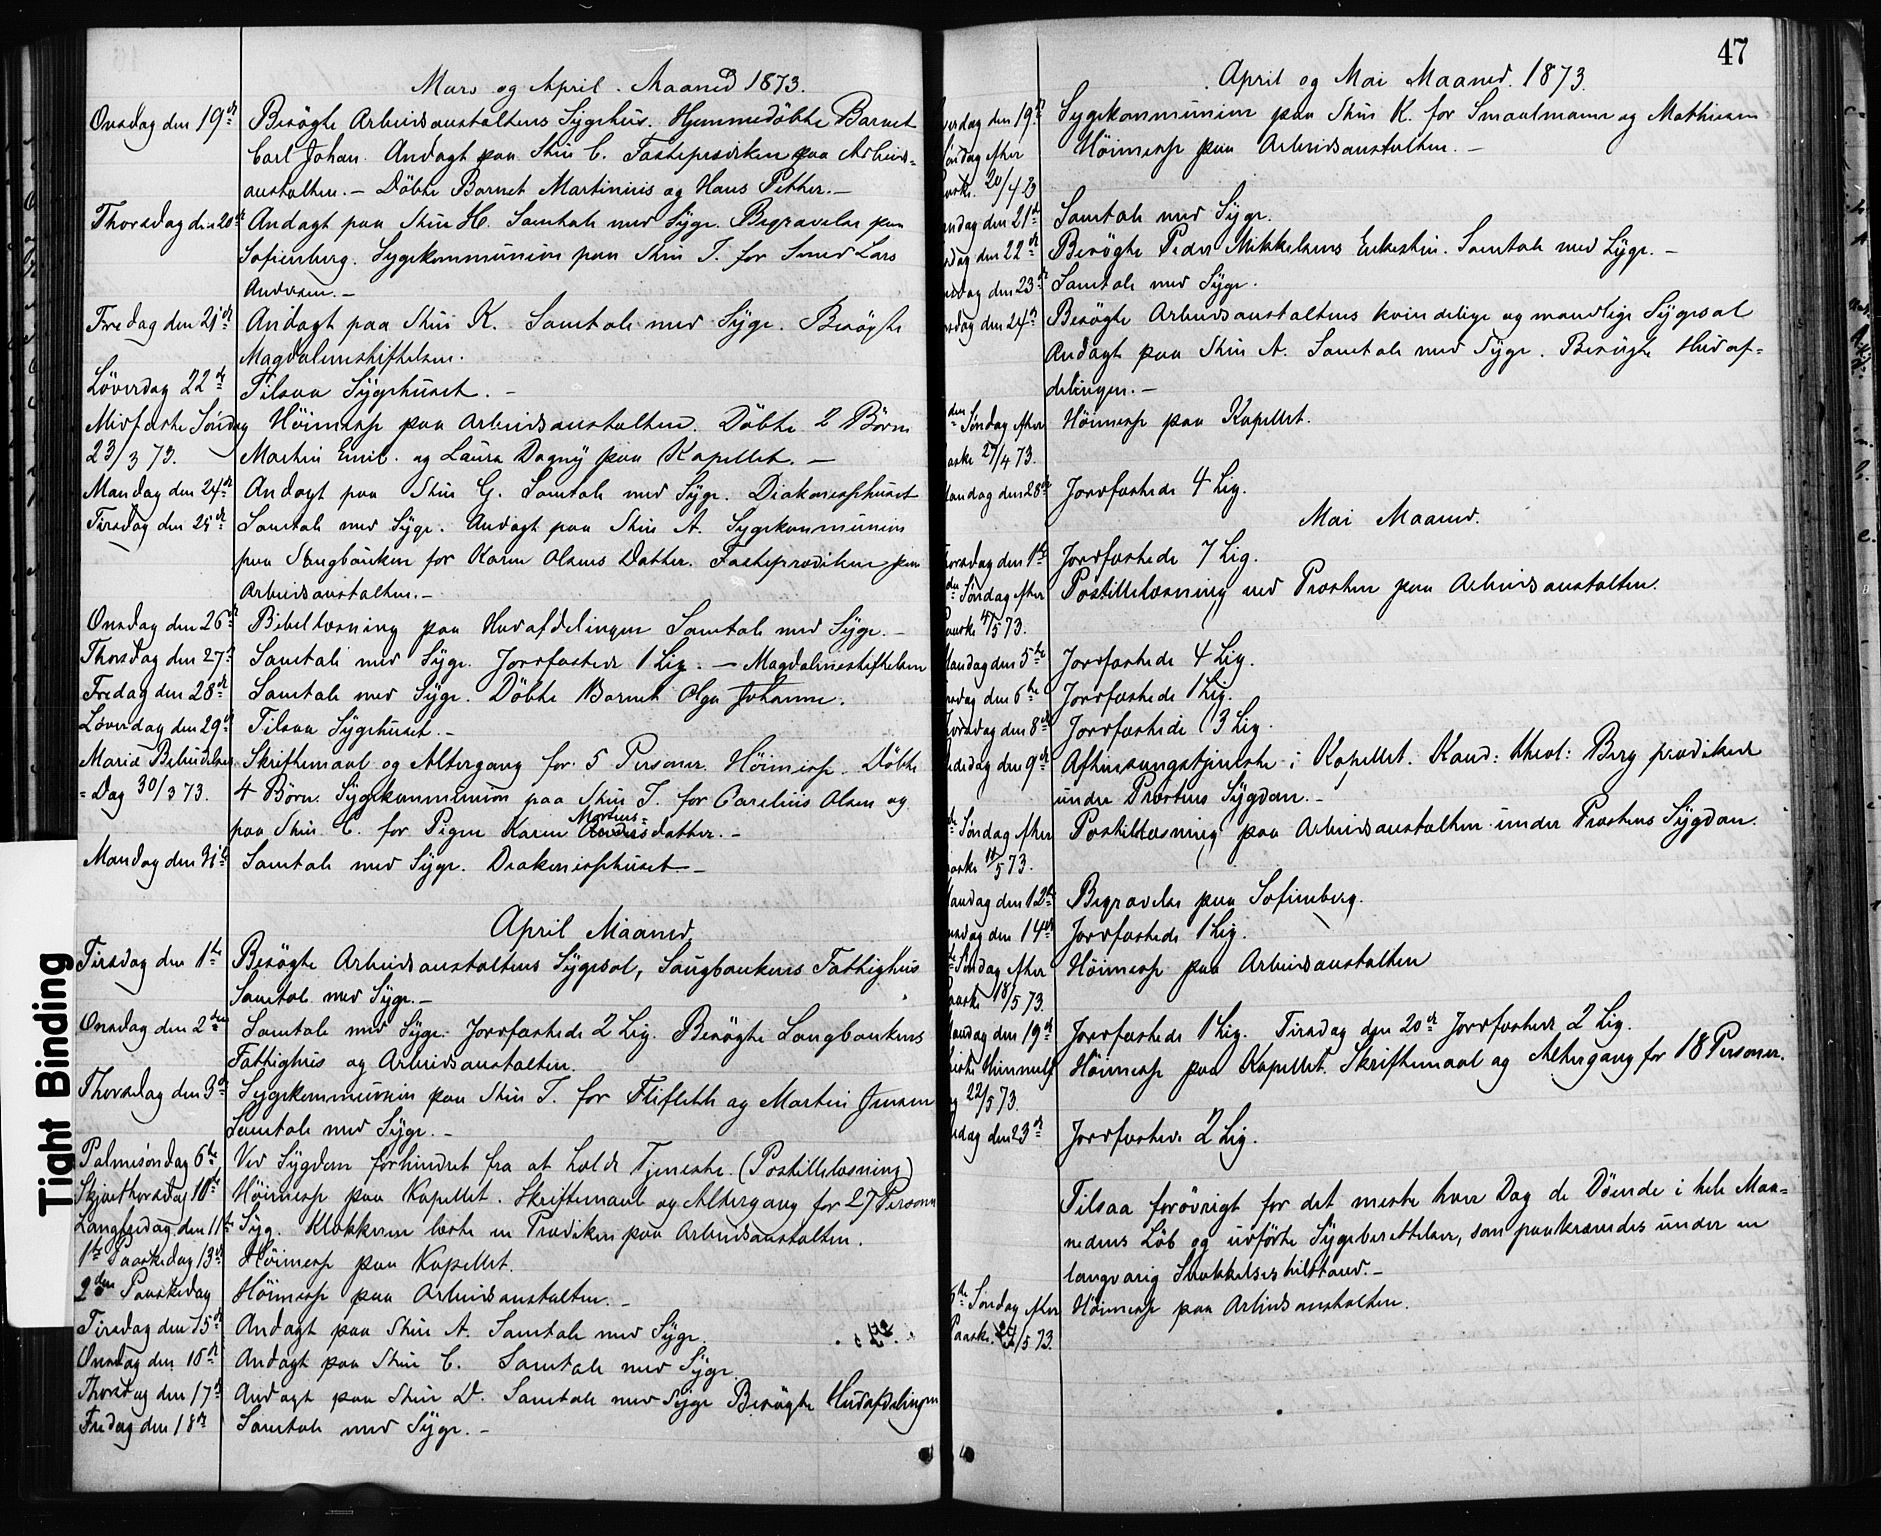 Mars og April Maaned 1873.
Onsdag den 19de Besøgte Arbeidsanstaltens Sygehus. Hjemmedöbte Barnet
Carl Johan. Andagt paa Stue C. Fasteprædiken paa Arbeids=
anstalten. – Döbte Barnet Martinius og Hans Petter. –
Thorsdag den 20de Andagt paa Stue H. Samtale med Syge. Begravelse paa
Sofienberg. Sygekommunion paa Stue I. for Smed Lars
Andersen. –
Fredag den 21de Andagt paa Stue K. Samtale med Syge. Besøgte
Magdalenestiftelsen.
Løverdag 22de Tilsaa Sygehuset. –
Midfaste Søndag Höimesse paa Arbeidsanstalten. Döbte 2 Börn
23/3 73. Martin Emil. og Laura Dagny paa Kapellet. –
Mandag den 24de Andagt paa Stue G. Samtale med Syge. Diakonissehuset
Tirsdag den 25de Samtale med Syge. Andagt paa Stue A. Sygekommunion
paa Sangbanken for Karen Olsens Datter. Fasteprædiken paa
Arbeidsanstalten. –
Onsdag den 26de Bibellæsning paa Hudafdelingen Samtale med Syge. –
Thorsdag den 27de Samtale med Syge. Jordfæstede 1 Lig. – Magdalenestiftelsen
Fredag den 28de Samtale med Syge. Döbte Barnet Olga Johanne.
Løverdag den 29de Tilsaa Sygehuset. –
Mariæ Bebudelses Skriftemaal og Altergang for 5 Personer. Höimesse. Döbte
= Dag 30/3 73. 4 Börn. Sygekommunion paa Stue I. for Carelius Olsen og
paa Stue C. for Pigen Karen Mortens= datter. –
Mandag den 31te Samtale med Syge. Diakonissehuset –
April Maaned
Tirsdag den 1ste Besøgte Arbeidsanstaltens Sygesal, Sangbankens Fattighus
Samtale med Syge. –
Onsdag den 2den Samtale med Syge. Jordfæstede 2 Lig. Besøgte Sangbankens
Fattighus og Arbeidsanstalten.
Thorsdag den 3de Sygekommunion paa Stue I. for Fliflet og Martin Jensen
Samtale med Syge. –
Palmesøndag 6te Ved Sygdom forhindret fra at holde Tjeneste. (Postillelæsning)
Skjærthorsdag 10de Höimesse paa Kapellet. Skriftemaal og Altergang for 27 Personer
Langfredag den 11te Syg. Klokkeren læste en Prædiken paa Arbeidsanstalten.
1ste Paaskedag 13de Höimesse paa Kapellet.
2den Paaskedag Höimesse paa Arbeidsanstalten. –
Tirsdag den 15de Andagt paa Stue A. Samtale med Syge.
Onsdag den 16de Andagt paa Stue C. Samtale med Syge.
Thorsdag den 17de Andagt paa Stue D. Samtale med Syge Besøgte Hudafdelingen
Fredag den 18de Samtale med Syge. –
47
April og Mai Maaned. 1873.
verdag den 19de Sygekommunion paa Stue K. for Smaalmann og Mathiesen
øndag efter Höimesse paa Arbeidsanstalten. –
aaske. 20/4 73
andag den 21de Samtale med Syge.
sdag den 22de Besøgte Peder Mikkelsens Enkestue. Samtale med Syge. –
nsdag den 23de Samtale med Syge.
rsdag den 24de Besøgte Arbeidsanstaltens kvindelige og mandlige Sygesal
Andagt paa Stue A. Samtale med Syge. Besøgte Hudaf=
delingen. –
den Søndag efter Höimesse paa Kapellet.
aaske 27/4 73.
andag den 28de Jordfæstede 4 Lig.
Mai Maaned.
horsdag den 1ste Jordfæstede 7 Lig.
Søndag efter Postillelæsning ved Præsten paa Arbeidsanstalten.
Paaske 4/5 73.
Mandag den 5te Jordfæstede 4 Lig.
rsdag den 6te Jordfæstede 1 Lig.
horsdag den 8de Jordfæstede 3 Lig.
redag den 9de Aftensangstjeneste i Kapellet. Kand: theol: Berg prædikede
under Præstens Sygdom. –
Søndag efter Postillelæsning paa Arbeidsanstalten under Præstens Sygdom.
aaske 11/5 73.
Mandag den 12te Begravelse paa Sofienberg.
nsdag den 14de Jordfæstede 1 Lig.
Søndag efter Höimesse paa Arbeidsanstalten
Paaske 18/5 73.
Mandag den 19de Jordfæstede 1 Lig. Tirsdag den 20de Jordfæstede 2 Lig.
risti Himmelf Höimesse paa Kapellet. Skriftemaal og Altergang for 18 Personer.
22/5 73.
redag den 23de Jordfæstede 2 Lig.
Tilsaa forövrigt for det meste hver Dag de Döende i hele Maa=
nedens Löb og udførte Sygeberettelser, som paakrævedes under en
langvarig Svækkelsestilstand. –
5te Søndag efter Höimesse paa Arbeidsanstalten.
Paaske. /5 73.
Tight Binding